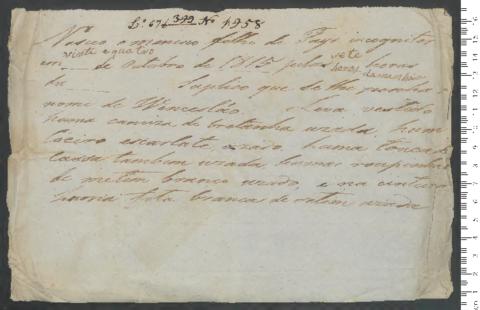 Lº 676 399 Nº 1958
Nasceo o menino filho de Pays incognitos
vinte e quatro
em de Outubro de 1815 pelas sete horas
horas da manhãa
da Suplico que se lhe ponha
nome de Wincesláo e Leva vestido
huma camiza de bretanha uzada, hum
coeiro escarlate, uzado huma touca de
cassa tambem uzada humas roupinhas
de metim branco uzado, e na cintura
huma fita branca de setim uzada